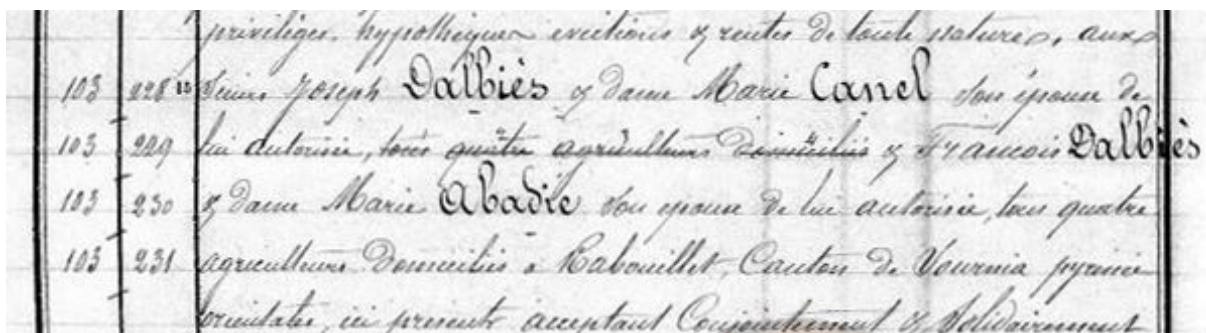 privilèges, hypothèques évictions & rentes de toute nature, aux
103 228 15 Sieurs Joseph Dalbiès & dame Marie Canel son épouse de
103 229 lui autorisée, tous quatre agriculteurs domiciliés & Francois Dalbiès
103 230 & dame Marie Abadie son épouse de lui autorisée, tous quatre
103 231 agriculteurs domiciliés à Rabouillet, Canton de Sournia pyrénées
orientales, ici présents acceptant Conjointement & Solidairement